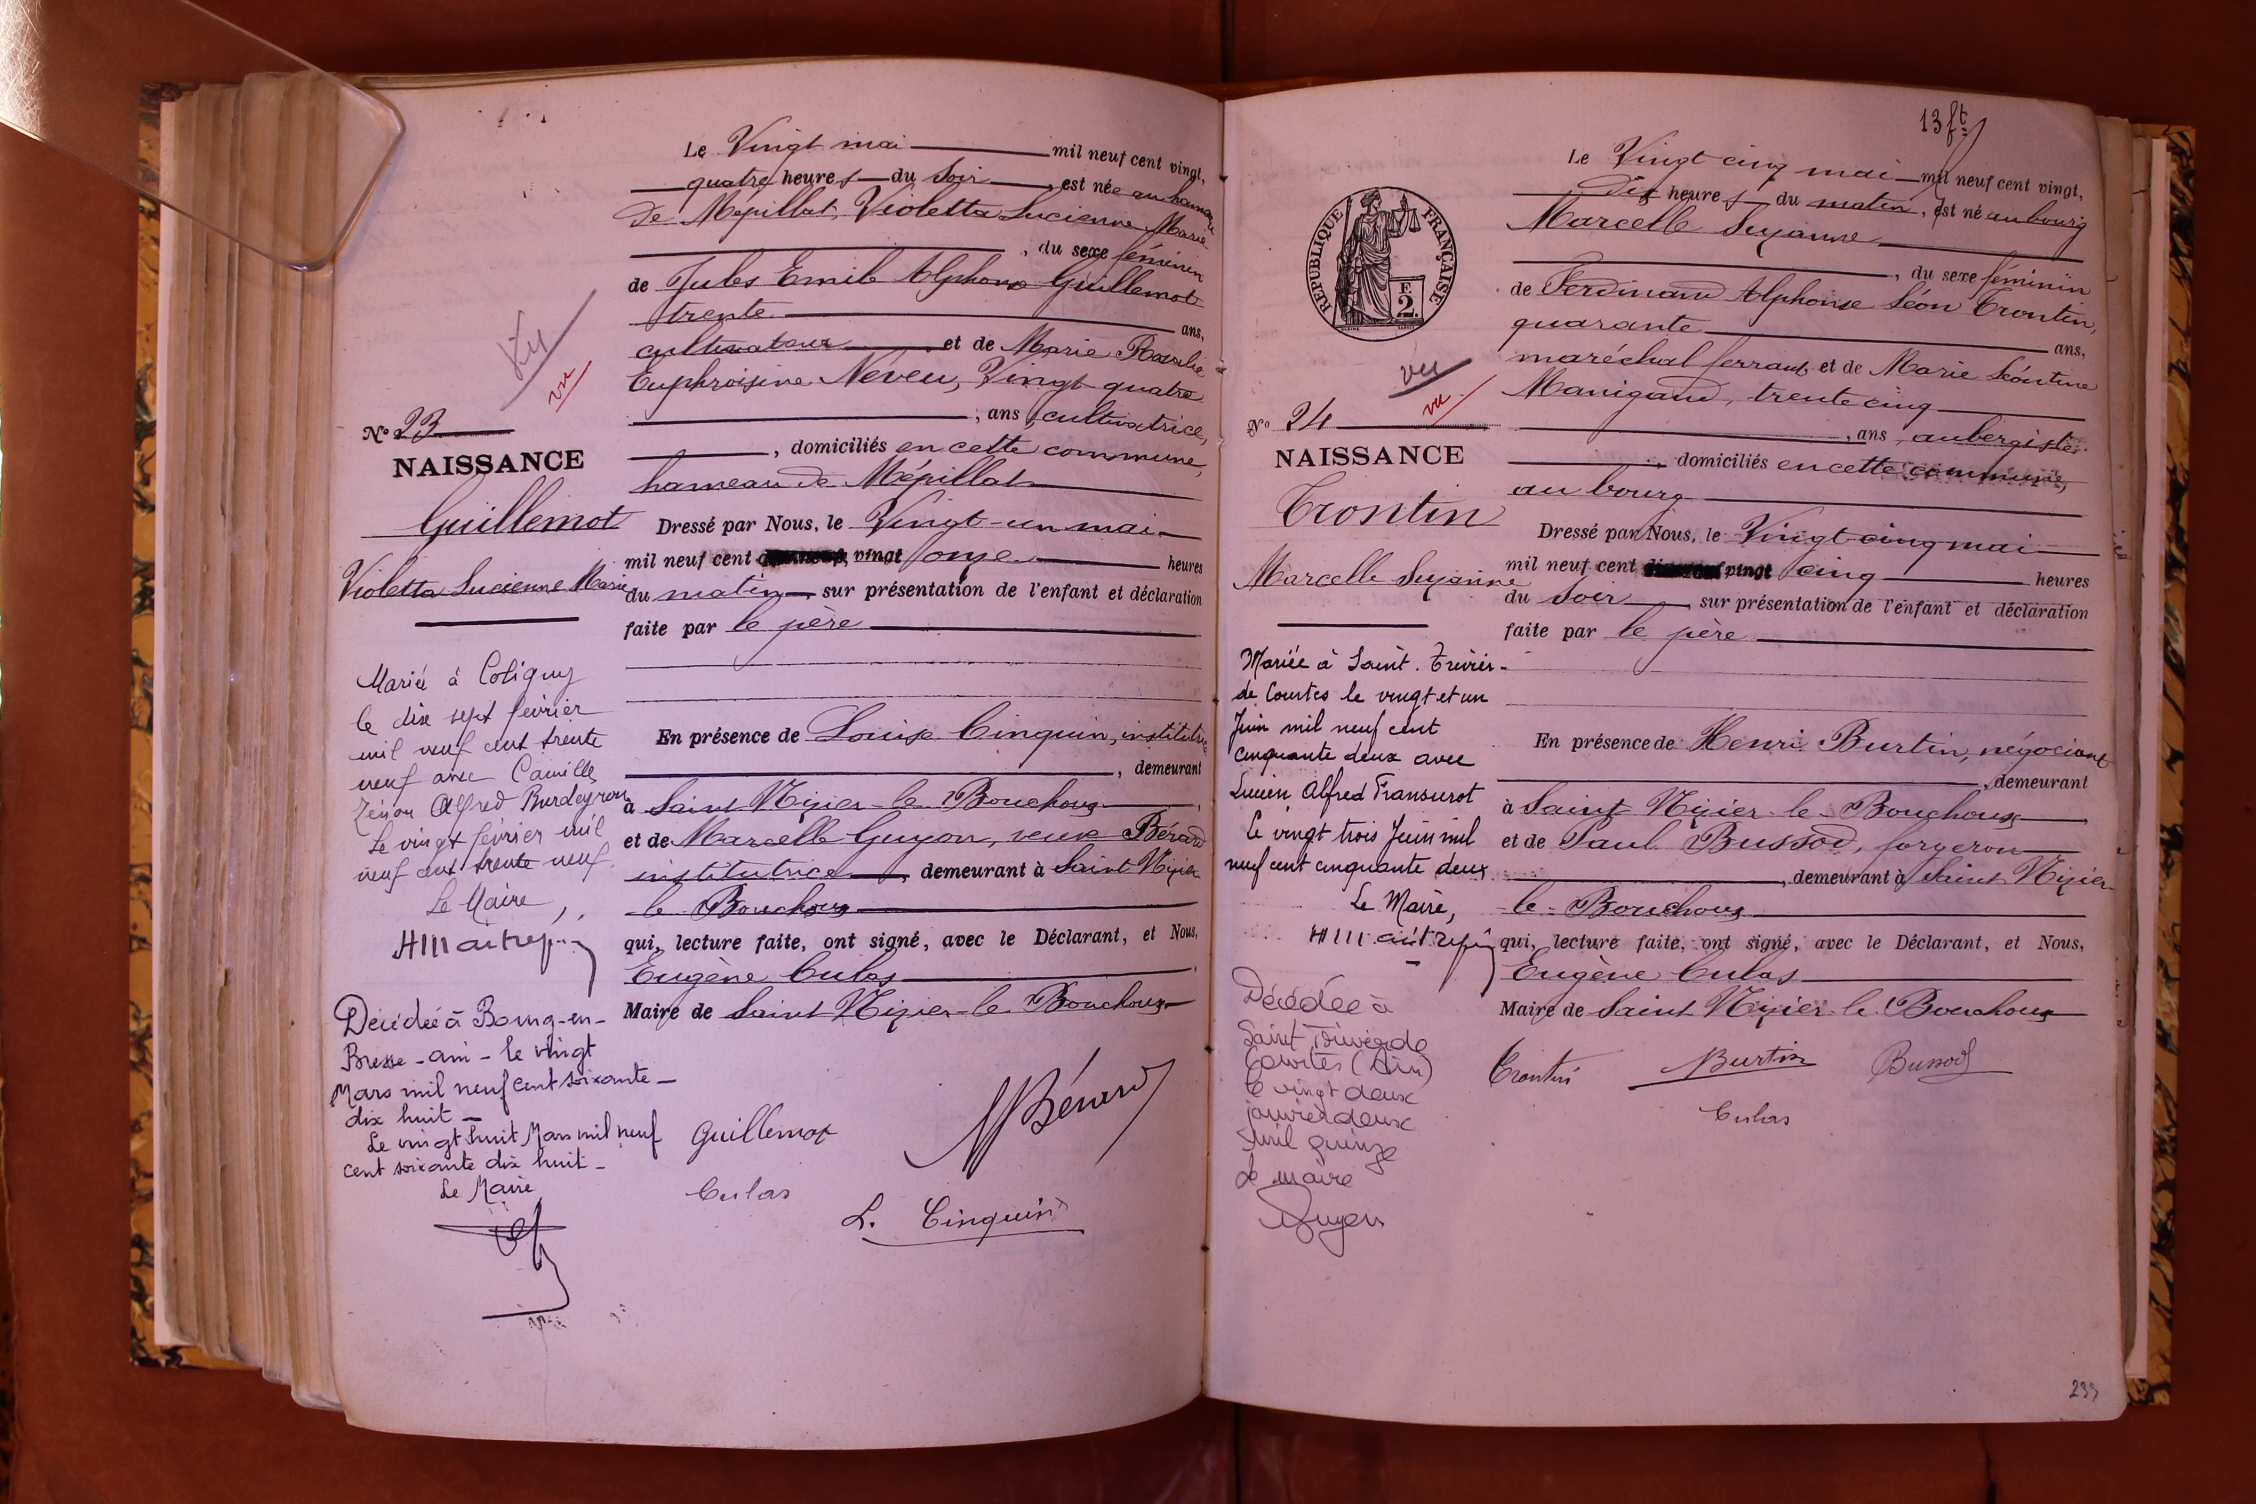 Le Vingt mai mil neuf cent vingt,
quatre heures du soir, est née au hameau
de Mépillat, Violetta Lucienne Marie
, du sexe féminin
de Jules Emile Alphonse Guillemot
trente ans,
cultivateur et de Marie Rosalie
Euphroisine Neveu, Vingt quatre
, ans, cultivatrice,
, domiciliés en cette commune,
hameau de Mépillat
Dressé par Nous, le Vingt-un mai
mil neuf cent vingt onze heures
du matin, sur présentation de l'enfant et déclaration
faite par le père
En présence de Louise Cinquin, institutrice
, demeurant
à Saint Nizier-le-Bouchoux,
et de Marcelle Guyon, veuve Bérard
institutrice, demeurant à Saint Nizier
le Bouchoux
qui, lecture faite, ont signé, avec le Déclarant, et Nous,
Eugène Culas,
Maire de Saint Nizier-le-Bouchoux
Guillemot
Bérard
Culas
L. Cinquin
Vu
vu
No 23
NAISSANCE
Guillemot
Violetta Lucienne Marie
Mariée à Coligny
le dix sept février
mil neuf cent trente
neuf avec Camille
Zénon Alfred Burdeyron
Le vingt février mil
neuf cent trente neuf.
Le Maire,
Décédée à Bourg-en-
Bresse - ain - le vingt
Mars mil neuf cent soixante-
dix huit -
Le vingt huit Mars mil neuf
cent soixante dix huit -
Le Maire
13 ft
Le Vingt cinq mai mil neuf cent vingt,
dix heures du matin, est né au bourg
Marcelle Suzanne
, du sexe féminin
de Ferdinand Alphonse Léon Trontin,
quarante ans,
maréchal ferrant et de Marie Léontine
Manigand, trente cinq
, ans, aubergiste,
, domiciliés en cette commune,
au bourg
Dressé par Nous, le Vingt-cinq mai
mil neuf cent vingt cinq heures
du soir, sur présentation de l'enfant et déclaration
faite par le père
En présence de Henri Burtin, négociant
, demeurant
à Saint Nizier-le-Bouchoux,
et de Paul Bussod, forgeron
, demeurant à Saint Nizier-
le-Bouchoux
qui, lecture faite, ont signé, avec le Déclarant, et Nous,
Eugène Culas
Maire de Saint Nizier-le-Bouchoux
Trontin Burtin Bussod
Culas
RÉPUBLIQUE FRANÇAISE
F.
2.
vu
vu.
No 24
NAISSANCE
Trontin
Marcelle Suzanne
Mariée à Saint-Trivier-
de Courtes le vingt et un
Juin mil neuf cent
cinquante deux avec
Lucien Alfred
Le vingt trois Juin mil
neuf cent cinquante deux.
Le Maire,
Décédée à
Saint Trivier de
Courtes (Ain)
le vingt deux
janvier deux
mil quinze
Le maire